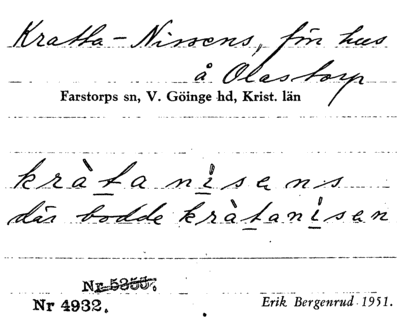 Kratta-Nissens, för hus
å Olastorp
Farstorps sn, V. Göinge hd, Krist. län
kràta nìsens
där bodde kràtanìsen
Nr 5355.
Nr 4932.
Erik Bergenrud 1951.